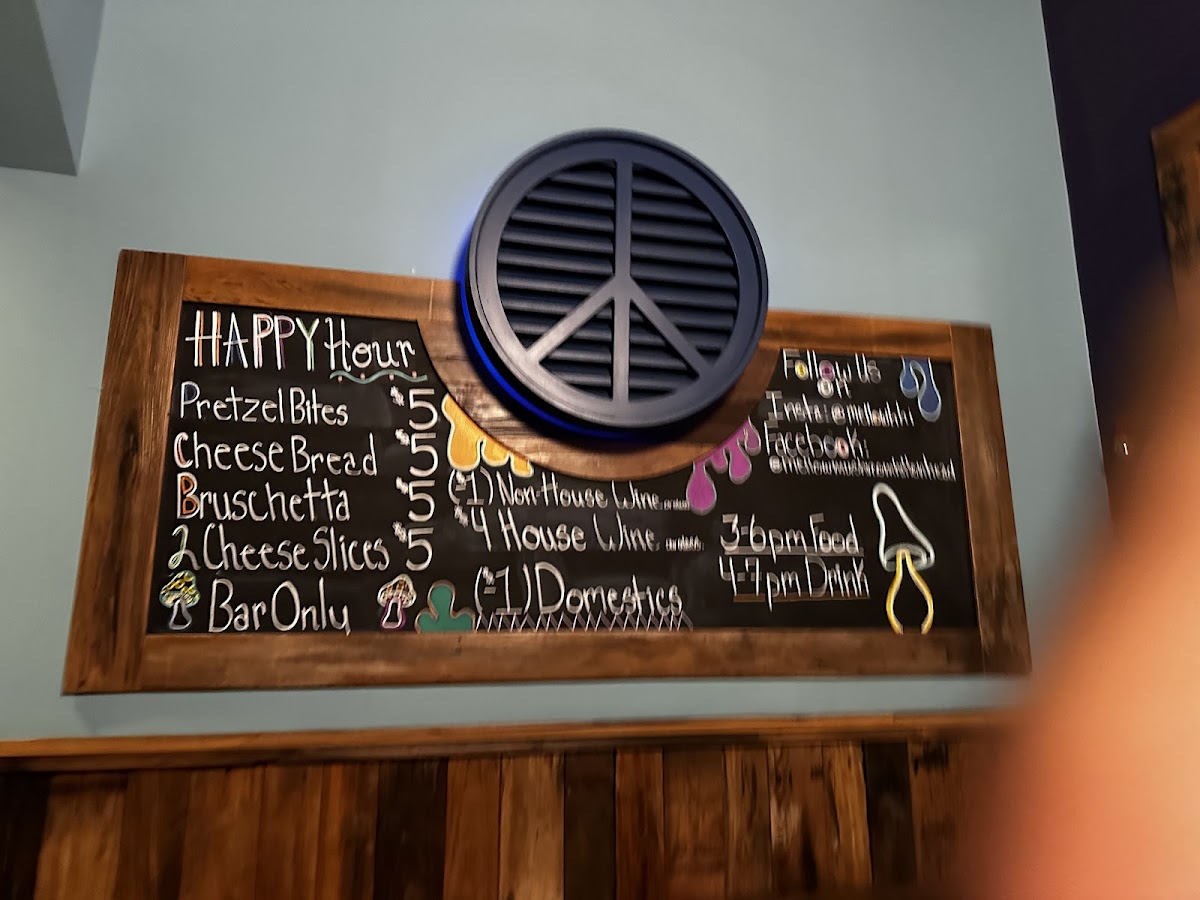 HAPPY Hour
Pretzel Bites $5
Cheese Bread $5
Bruschetta $5
2 Cheese Slices $5
Bar Only
($1) Non-House Wine
$4 House Wine
($1) Domestics
Follow Us
On
Insta:
Facebook:
3-6pm Food
4-7pm Drink